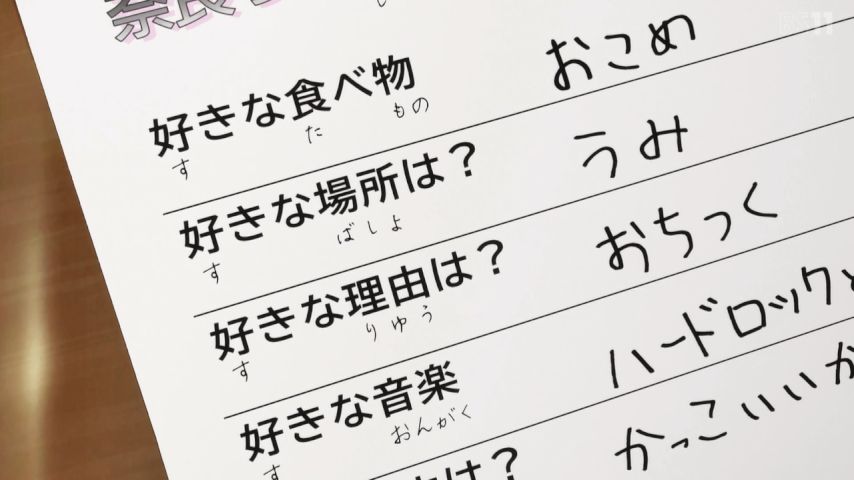 奈良
BS11
好きな食べ物 おこめ
す た もの
好きな場所は? うみ
す ばしょ
好きな理由は? おちっく
す りゆう
好きな音楽 ハードロックと
す おんがく
は? かっこいいか